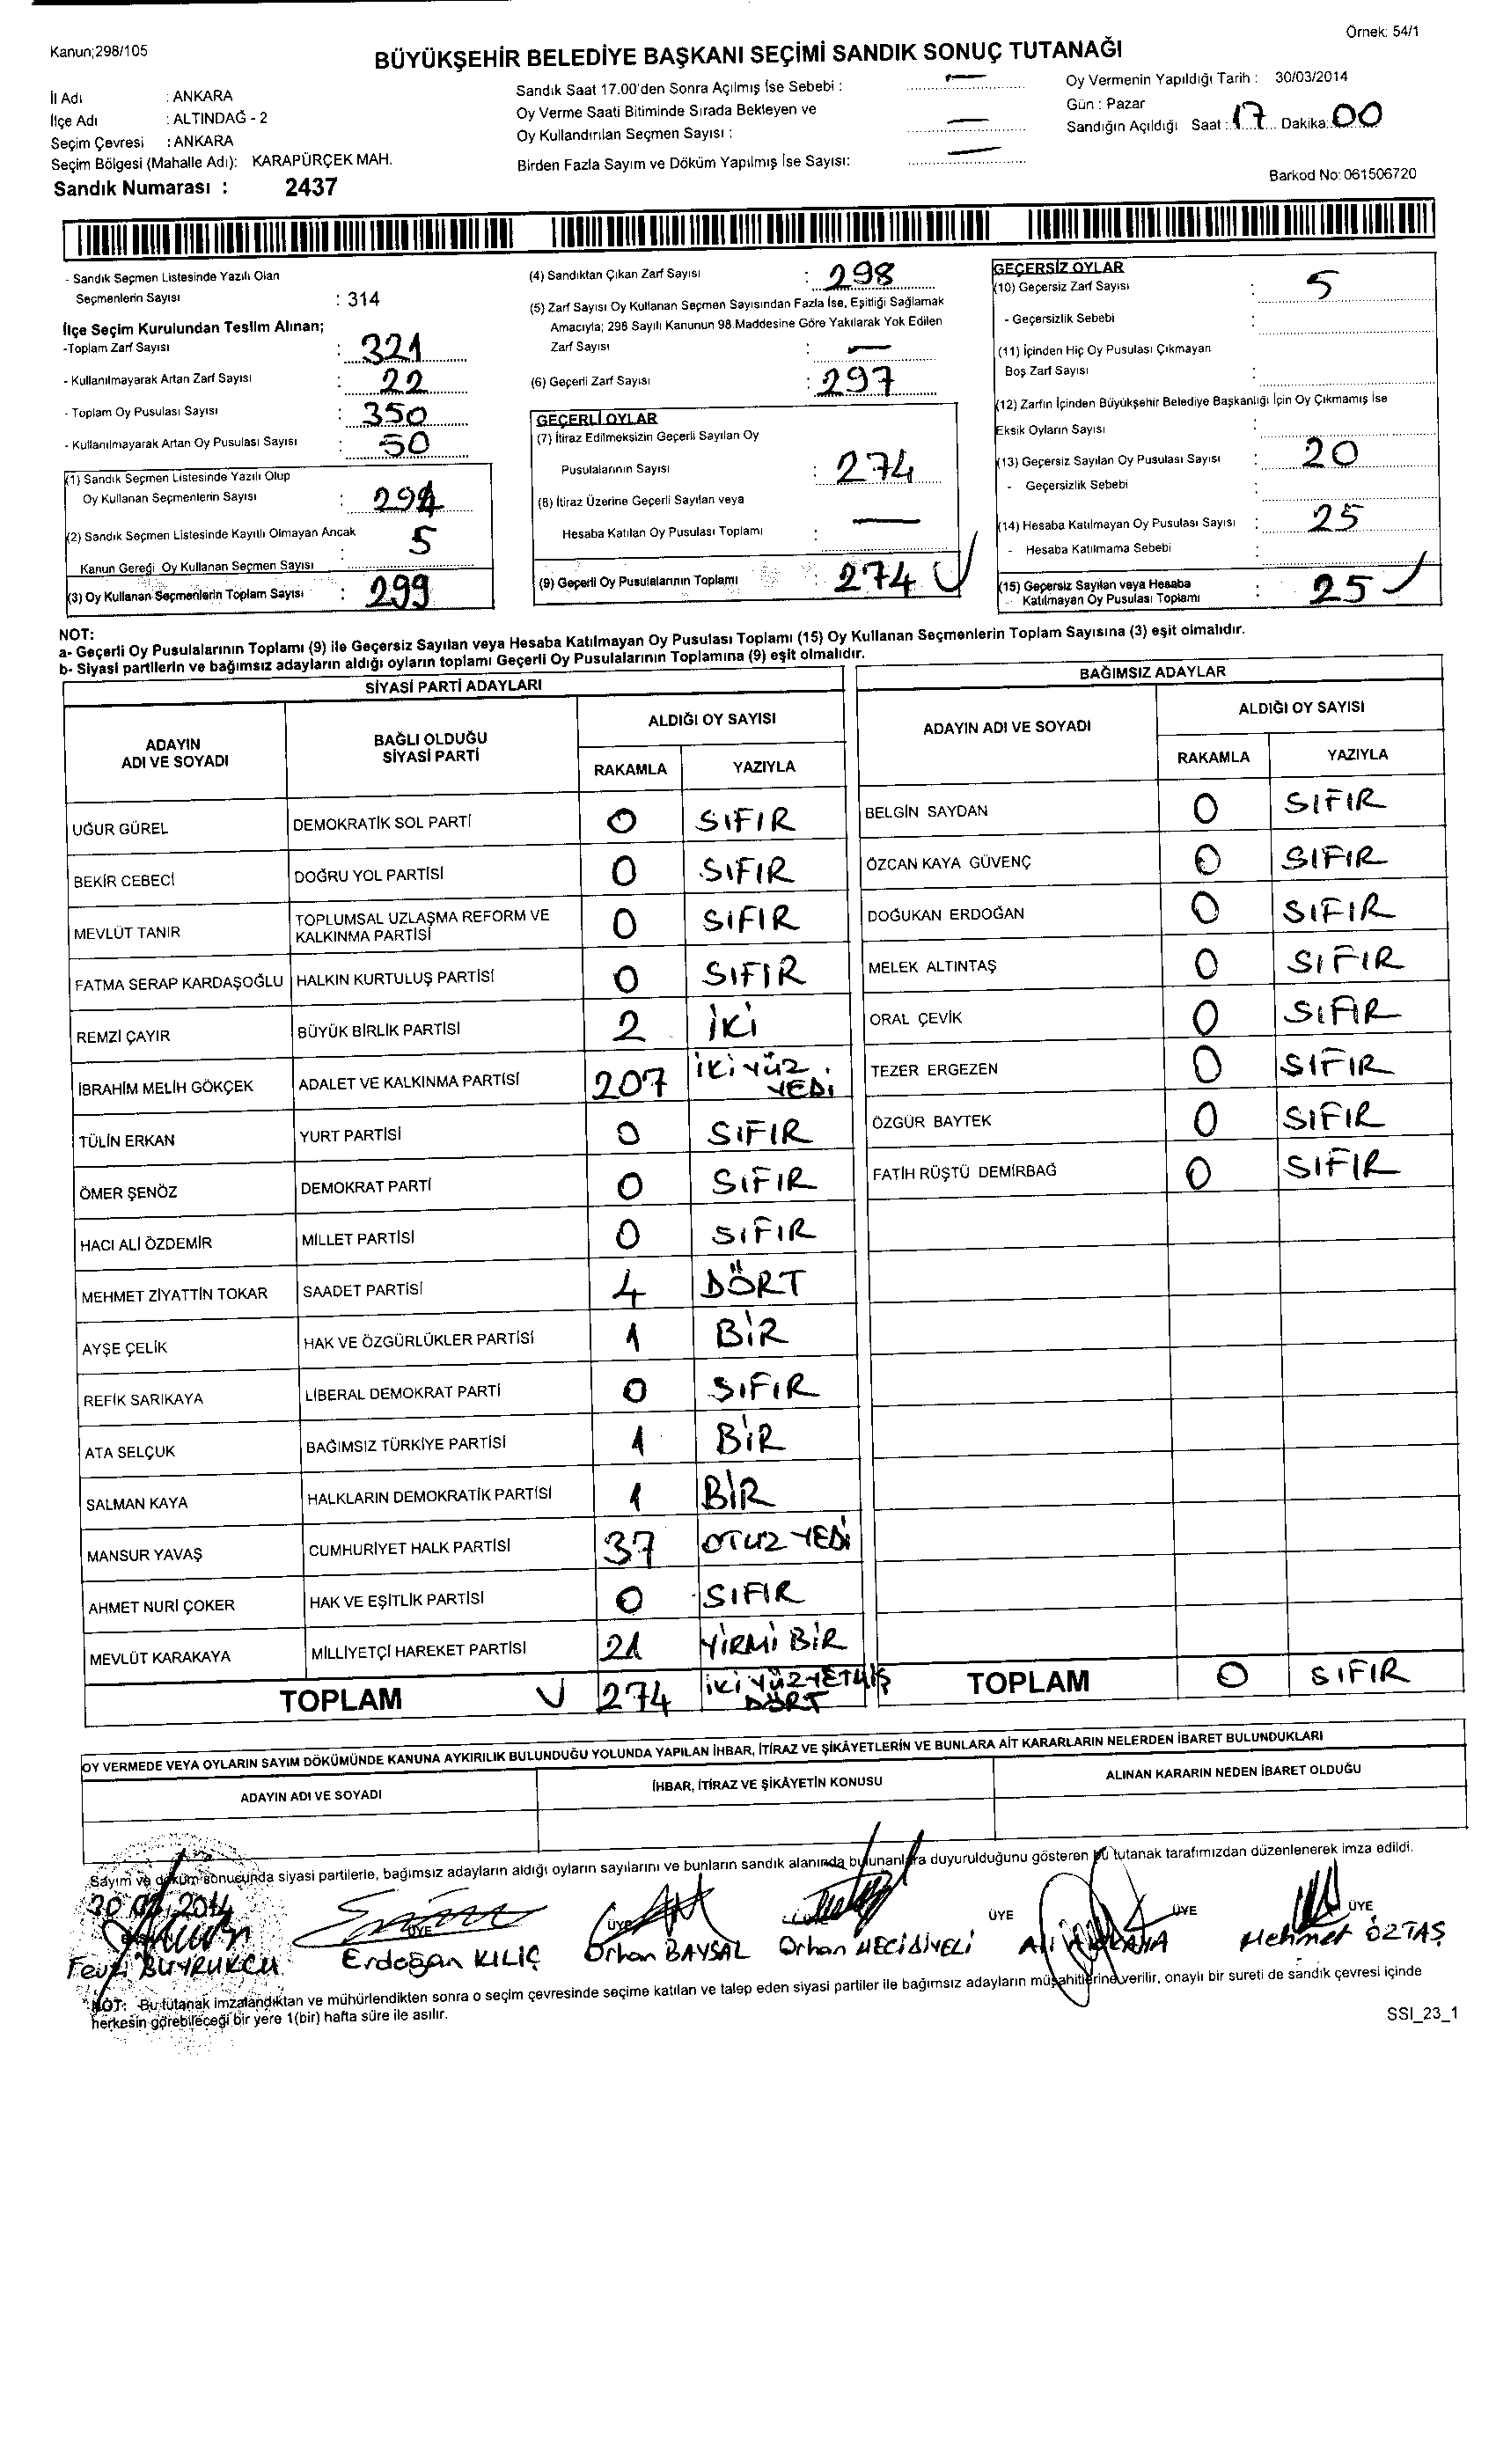 Örnek: 54/1
Kanun;298/105
BÜYÜKŞEHİR BELEDİYE BAŞKANI SEÇİMİ SANDIK SONUÇ TUTANAĞI
İl Adı : ANKARA
İlçe Adı : ALTINDAĞ - 2
Seçim Çevresi : ANKARA
Seçim Bölgesi (Mahalle Adı): KARAPÜRÇEK MAH.
Sandık Numarası : 2437
Sandık Saat 17.00'den Sonra Açılmış İse Sebebi : —
Oy Verme Saati Bitiminde Sırada Bekleyen ve
Oy Kullandırılan Seçmen Sayısı : —
Birden Fazla Sayım ve Döküm Yapılmış İse Sayısı: —
Oy Vermenin Yapıldığı Tarih : 30/03/2014
Gün : Pazar
Sandığın Açıldığı Saat : 17 Dakika: 00
Barkod No: 061506720
- Sandık Seçmen Listesinde Yazılı Olan
Seçmenlerin Sayısı : 314
İlçe Seçim Kurulundan Teslim Alınan;
-Toplam Zarf Sayısı : 321
- Kullanılmayarak Artan Zarf Sayısı : 22
- Toplam Oy Pusulası Sayısı : 350
- Kullanılmayarak Artan Oy Pusulası Sayısı : 50
(1) Sandık Seçmen Listesinde Yazılı Olup
Oy Kullanan Seçmenlerin Sayısı : 294
(2) Sandık Seçmen Listesinde Kayıtlı Olmayan Ancak
Kanun Gereği Oy Kullanan Seçmen Sayısı : 5
(3) Oy Kullanan Seçmenlerin Toplam Sayısı : 299
(4) Sandıktan Çıkan Zarf Sayısı : 298
(5) Zarf Sayısı Oy Kullanan Seçmen Sayısından Fazla İse, Eşitliği Sağlamak
Amacıyla; 298 Sayılı Kanunun 98.Maddesine Göre Yakılarak Yok Edilen
Zarf Sayısı : —
(6) Geçerli Zarf Sayısı : 297
GEÇERLİ OYLAR
(7) İtiraz Edilmeksizin Geçerli Sayılan Oy
Pusulalarının Sayısı : 274
(8) İtiraz Üzerine Geçerli Sayılan veya
Hesaba Katılan Oy Pusulası Toplamı : —
(9) Geçerli Oy Pusulalarının Toplamı : 274
GEÇERSİZ OYLAR
(10) Geçersiz Zarf Sayısı : 5
- Geçersizlik Sebebi :
(11) İçinden Hiç Oy Pusulası Çıkmayan
Boş Zarf Sayısı :
(12) Zarfın İçinden Büyükşehir Belediye Başkanlığı İçin Oy Çıkmamış İse
Eksik Oyların Sayısı :
(13) Geçersiz Sayılan Oy Pusulası Sayısı : 20
- Geçersizlik Sebebi :
(14) Hesaba Katılmayan Oy Pusulası Sayısı : 25
- Hesaba Katılmama Sebebi :
(15) Geçersiz Sayılan veya Hesaba
Katılmayan Oy Pusulası Toplamı : 25
NOT:
a- Geçerli Oy Pusulalarının Toplamı (9) ile Geçersiz Sayılan veya Hesaba Katılmayan Oy Pusulası Toplamı (15) Oy Kullanan Seçmenlerin Toplam Sayısına (3) eşit olmalıdır.
b- Siyasi partilerin ve bağımsız adayların aldığı oyların toplamı Geçerli Oy Pusulalarının Toplamına (9) eşit olmalıdır.
SİYASİ PARTİ ADAYLARI
ADAYIN ADI VE SOYADI BAĞLI OLDUĞU SİYASİ PARTİ ALDIĞI OY SAYISI
RAKAMLA YAZIYLA
UĞUR GÜREL DEMOKRATİK SOL PARTİ 0 SIFIR
BEKİR CEBECİ DOĞRU YOL PARTİSİ 0 SIFIR
MEVLÜT TANIR TOPLUMSAL UZLAŞMA REFORM VE KALKINMA PARTİSİ 0 SIFIR
FATMA SERAP KARDAŞOĞLU HALKIN KURTULUŞ PARTİSİ 0 SIFIR
REMZİ ÇAYIR BÜYÜK BİRLİK PARTİSİ 2 İKİ
İBRAHİM MELİH GÖKÇEK ADALET VE KALKINMA PARTİSİ 207 İKİ YÜZ YEDİ
TÜLİN ERKAN YURT PARTİSİ 0 SIFIR
ÖMER ŞENÖZ DEMOKRAT PARTİ 0 SIFIR
HACI ALİ ÖZDEMİR MİLLET PARTİSİ 0 SIFIR
MEHMET ZİYATTİN TOKAR SAADET PARTİSİ 4 DÖRT
AYŞE ÇELİK HAK VE ÖZGÜRLÜKLER PARTİSİ 1 BİR
REFİK SARIKAYA LİBERAL DEMOKRAT PARTİ 0 SIFIR
ATA SELÇUK BAĞIMSIZ TÜRKİYE PARTİSİ 1 BİR
SALMAN KAYA HALKLARIN DEMOKRATİK PARTİSİ 1 BİR
MANSUR YAVAŞ CUMHURİYET HALK PARTİSİ 37 OTUZ YEDİ
AHMET NURİ ÇOKER HAK VE EŞİTLİK PARTİSİ 0 SIFIR
MEVLÜT KARAKAYA MİLLİYETÇİ HAREKET PARTİSİ 21 YİRMİ BİR
TOPLAM 274 İKİ YÜZ YETMİŞ DÖRT
BAĞIMSIZ ADAYLAR
ADAYIN ADI VE SOYADI ALDIĞI OY SAYISI
RAKAMLA YAZIYLA
BELGİN SAYDAN 0 SIFIR
ÖZCAN KAYA GÜVENÇ 0 SIFIR
DOĞUKAN ERDOĞAN 0 SIFIR
MELEK ALTINTAŞ 0 SIFIR
ORAL ÇEVİK 0 SIFIR
TEZER ERGEZEN 0 SIFIR
ÖZGÜR BAYTEK 0 SIFIR
FATİH RÜŞTÜ DEMİRBAĞ 0 SIFIR
TOPLAM 0 SIFIR
OY VERMEDE VEYA OYLARIN SAYIM DÖKÜMÜNDE KANUNA AYKIRILIK BULUNDUĞU YOLUNDA YAPILAN İHBAR, İTİRAZ VE ŞİKÂYETLERİN VE BUNLARA AİT KARARLARIN NELERDEN İBARET BULUNDUKLARI
ADAYIN ADI VE SOYADI İHBAR, İTİRAZ VE ŞİKÂYETİN KONUSU ALINAN KARARIN NEDEN İBARET OLDUĞU
Sayım ve döküm sonucunda siyasi partilerle, bağımsız adayların aldığı oyların sayılarını ve bunların sandık alanında bulunanlara duyurulduğunu gösteren bu tutanak tarafımızdan düzenlenerek imza edildi.
30.03.2014
ÜYE ÜYE ÜYE ÜYE ÜYE
Fevzi BUYRUKCU Erdoğan KILIÇ Orhan BAYSAL Orhan MECİDİYELİ Ali Mehmet ÖZTAŞ
NOT: Bu tutanak imzalandıktan ve mühürlendikten sonra o seçim çevresinde seçime katılan ve talep eden siyasi partiler ile bağımsız adayların müşahitlerine verilir, onaylı bir sureti de sandık çevresi içinde
herkesin görebileceği bir yere 1(bir) hafta süre ile asılır.
SSI_23_1